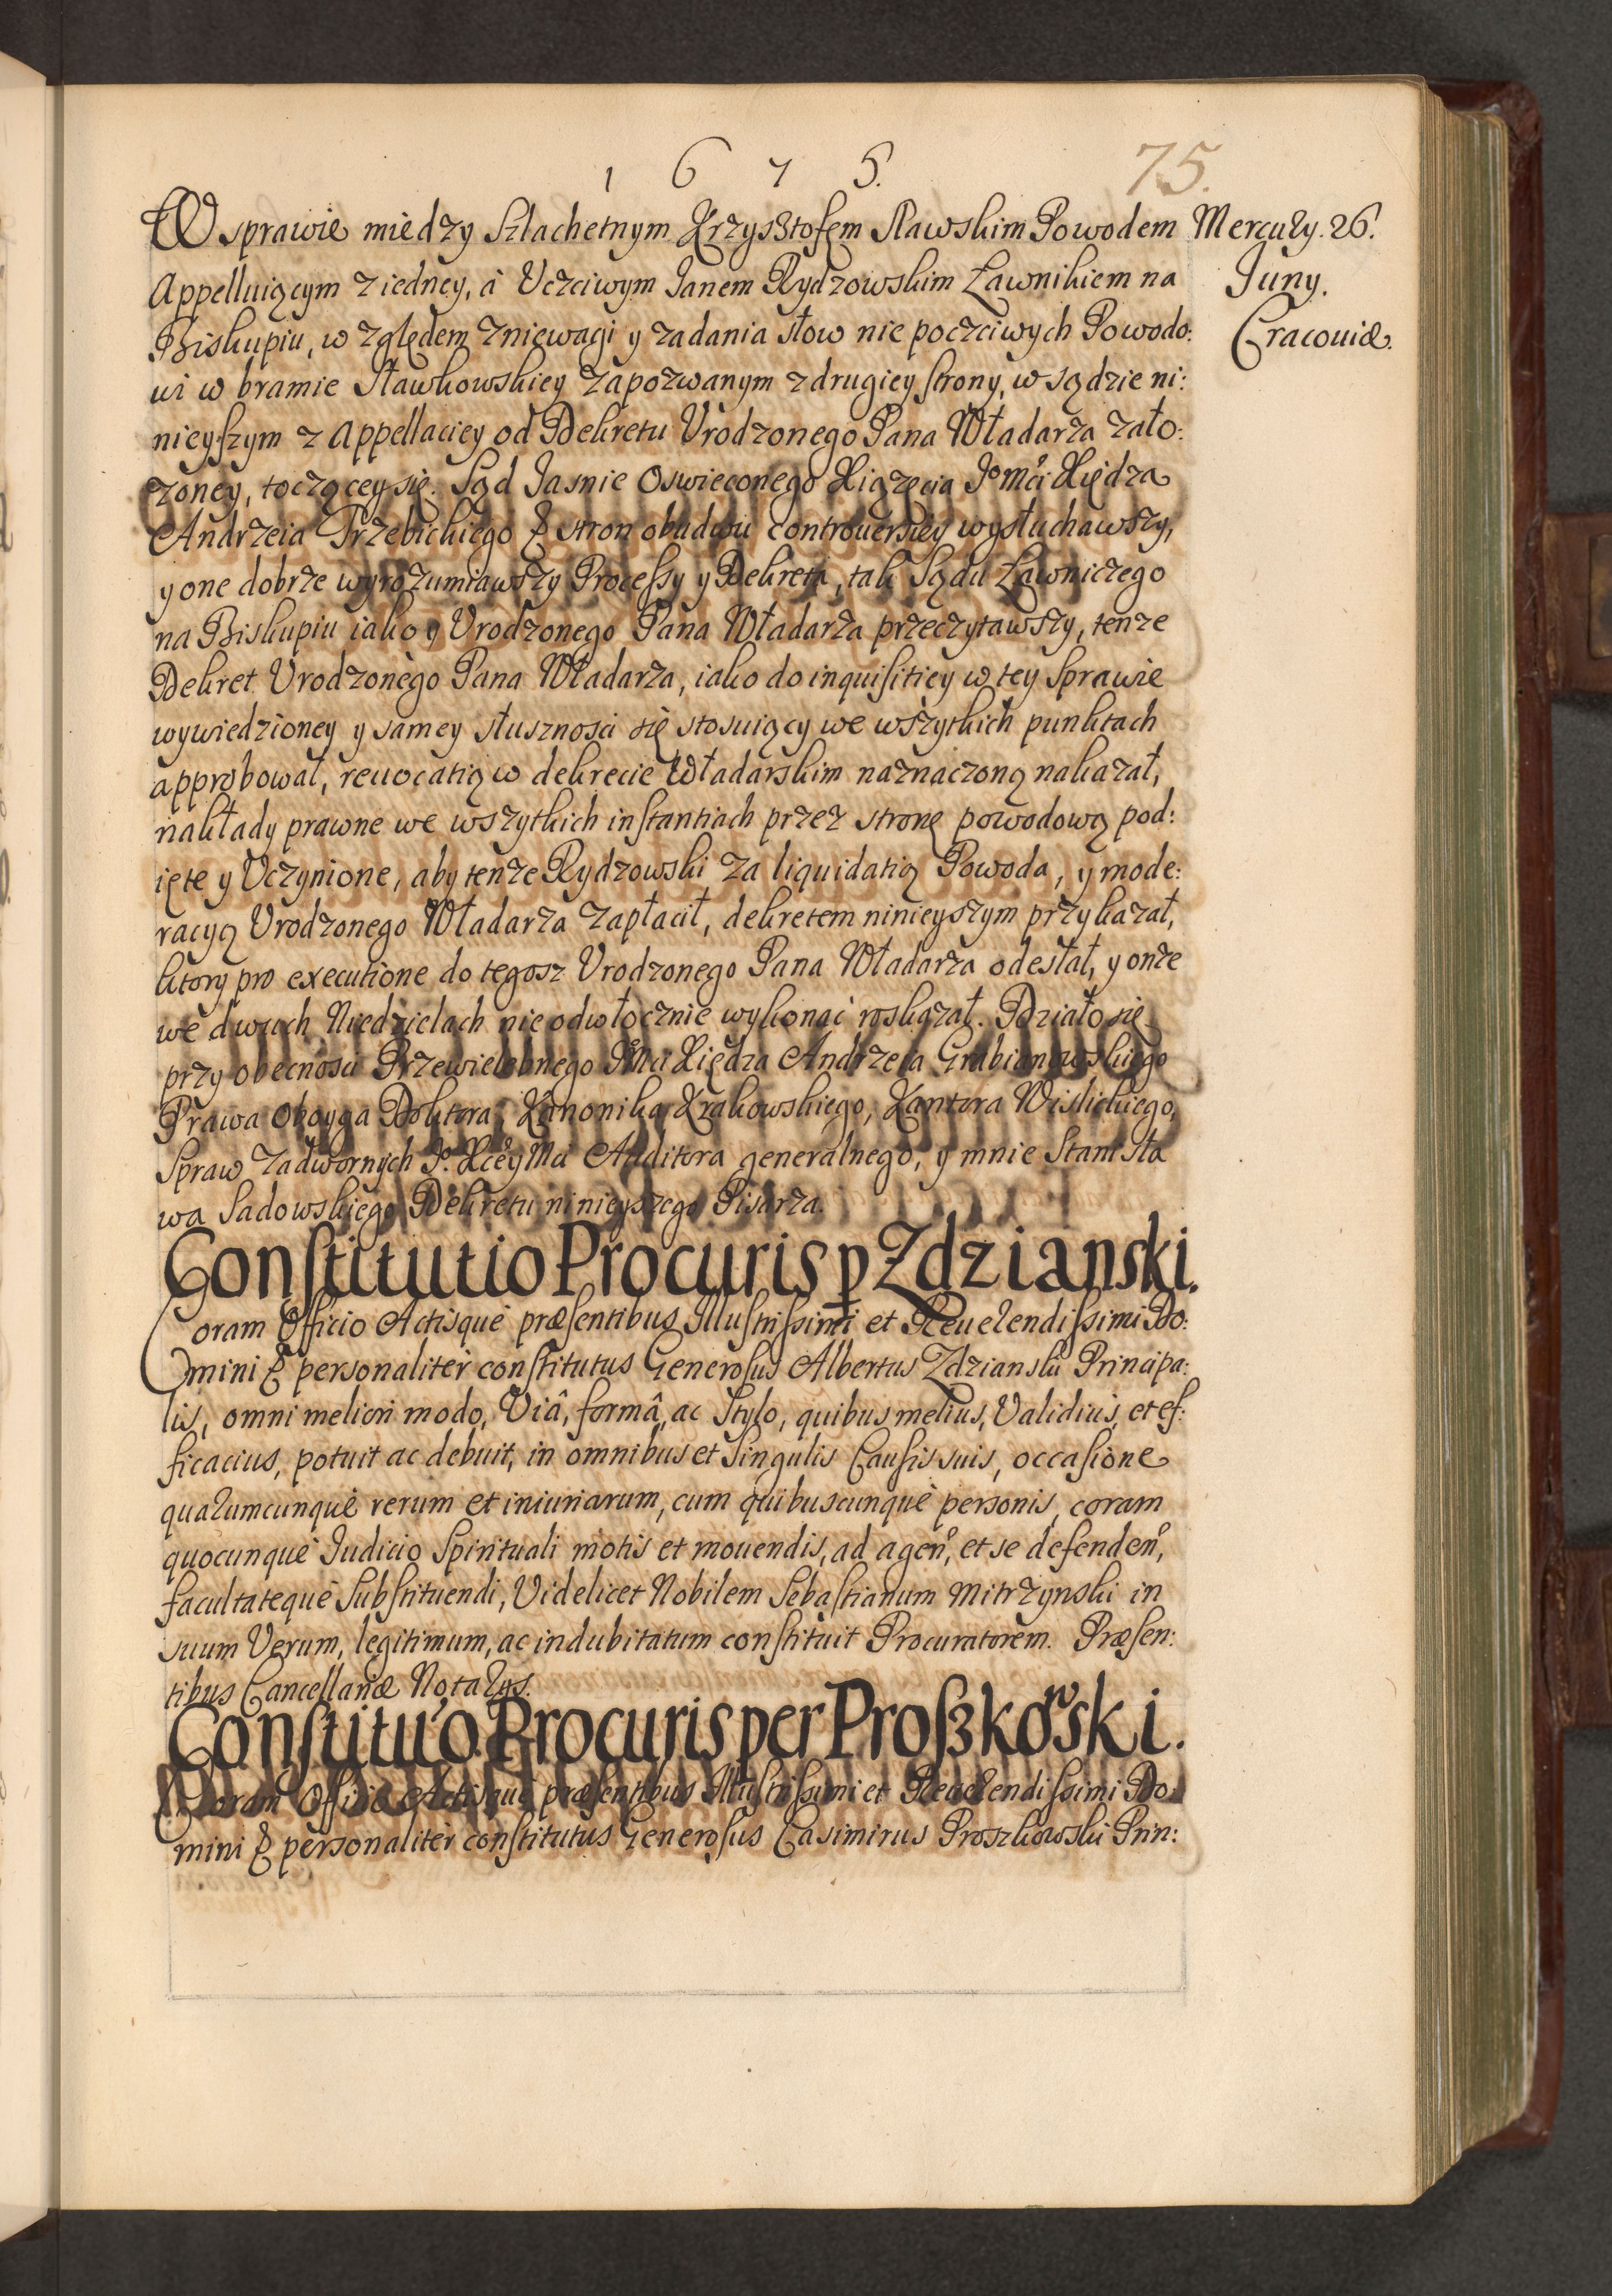 1 6 7 5.
75.
W sprawie między Szlachetnym Krzysztofem Sławskim Powodem
Mercury. 26.
Juny.
Cracouiæ.
Appelluiącym z iedney, á Vczciwym Janem Rydzowskim Ławnikiem na
Biskupiu, względem zniewagi y zadania słow nie poczciwych Powodo:
wi w bramie Sławkowskiey zapozwanym z drugiey strony, w sądzie ni:
nieyszym z Appellaciey od Dekretu Vrodzonego Pana Władarza zało:
zoney, toczącey się. Sąd Jasnie Oswieconego Xiązęcia Jo Mci Xiędza
Andrzeia Trzebickiego & stron obudwu controuersiey wysłuchawszy,
y one dobrze wyrozumiawszy Processy y Dekreta, tak Sądu Ławniczego
na Biskupiu iako y Vrodzonego Pana Władarza przeczytawszy, tenze
Dekret Vrodzonego Pana Władarza, iako do inquisitiey w tey Sprawie
wywiedzioney y samey słusznosci się stosuiący we wszytkich punktach
approbował, reuocatią w dekrecie Władarskim naznaczoną nakazał,
nakłady prawne we wszytkich instantiach przez stronę powodową pod:
ięte y Vczynione, aby tenze Rydzowski za liquidatią Powoda, y mode:
racyą Vrodzonego Władarza zapłacił, dekretem ninieyszym przykazał,
ktory pro executione do tegosz Vrodzonego Pana Władarza odesłał, y onze
we dwuch Niedzielach nieodwłocznie wykonać roskązał. Działo się
przy obecnosci Przewielebnego JMci Xiędza Andrzeia Grabianowskiego
Prawa Oboyga Doktora, Kanonika Krakowskiego, Kantora Wislickiego,
Spraw Zadwornych Jo. Xcey Mci Auditora generalnego, y mnie Stanisła
wa Sadowskiego Dekretu ninieyszego Pisarza.
Constitutio Procuris p Zdzianski.
Coram Officio Actisque præsentibus Illustrissimi et Reuerendissimi Do:
mini & personaliter constitutus Generosus Albertus Zdzianski Principa:
lis, omni meliori modo, Viâ, formâ, ac Stylo, quibus melius, Validius, et ef:
ficacius, potuit ac debuit, in omnibus et Singulis Causis suis, occasione
quarumcunque rerum et iniuriarum, cum quibuscunque personis, coram
quocunque Judicio Spirituali motis et mouendis, ad agen, et se defenden,
facultateque Substituendi, Videlicet Nobilem Sebastianum Mitrzynski in
suum Verum, legitimum, ac indubitatum constituit Procuratorem. Præsen:
tibus Cancellariæ Notarys.
Constitu'o Procuris per Proszkowski.
Coram Officio Actisque præsentibus Illustrissimi et Reuerendissimi Do:
mini & personaliter constitutus Generosus Casimirus Proszkowski Prin: